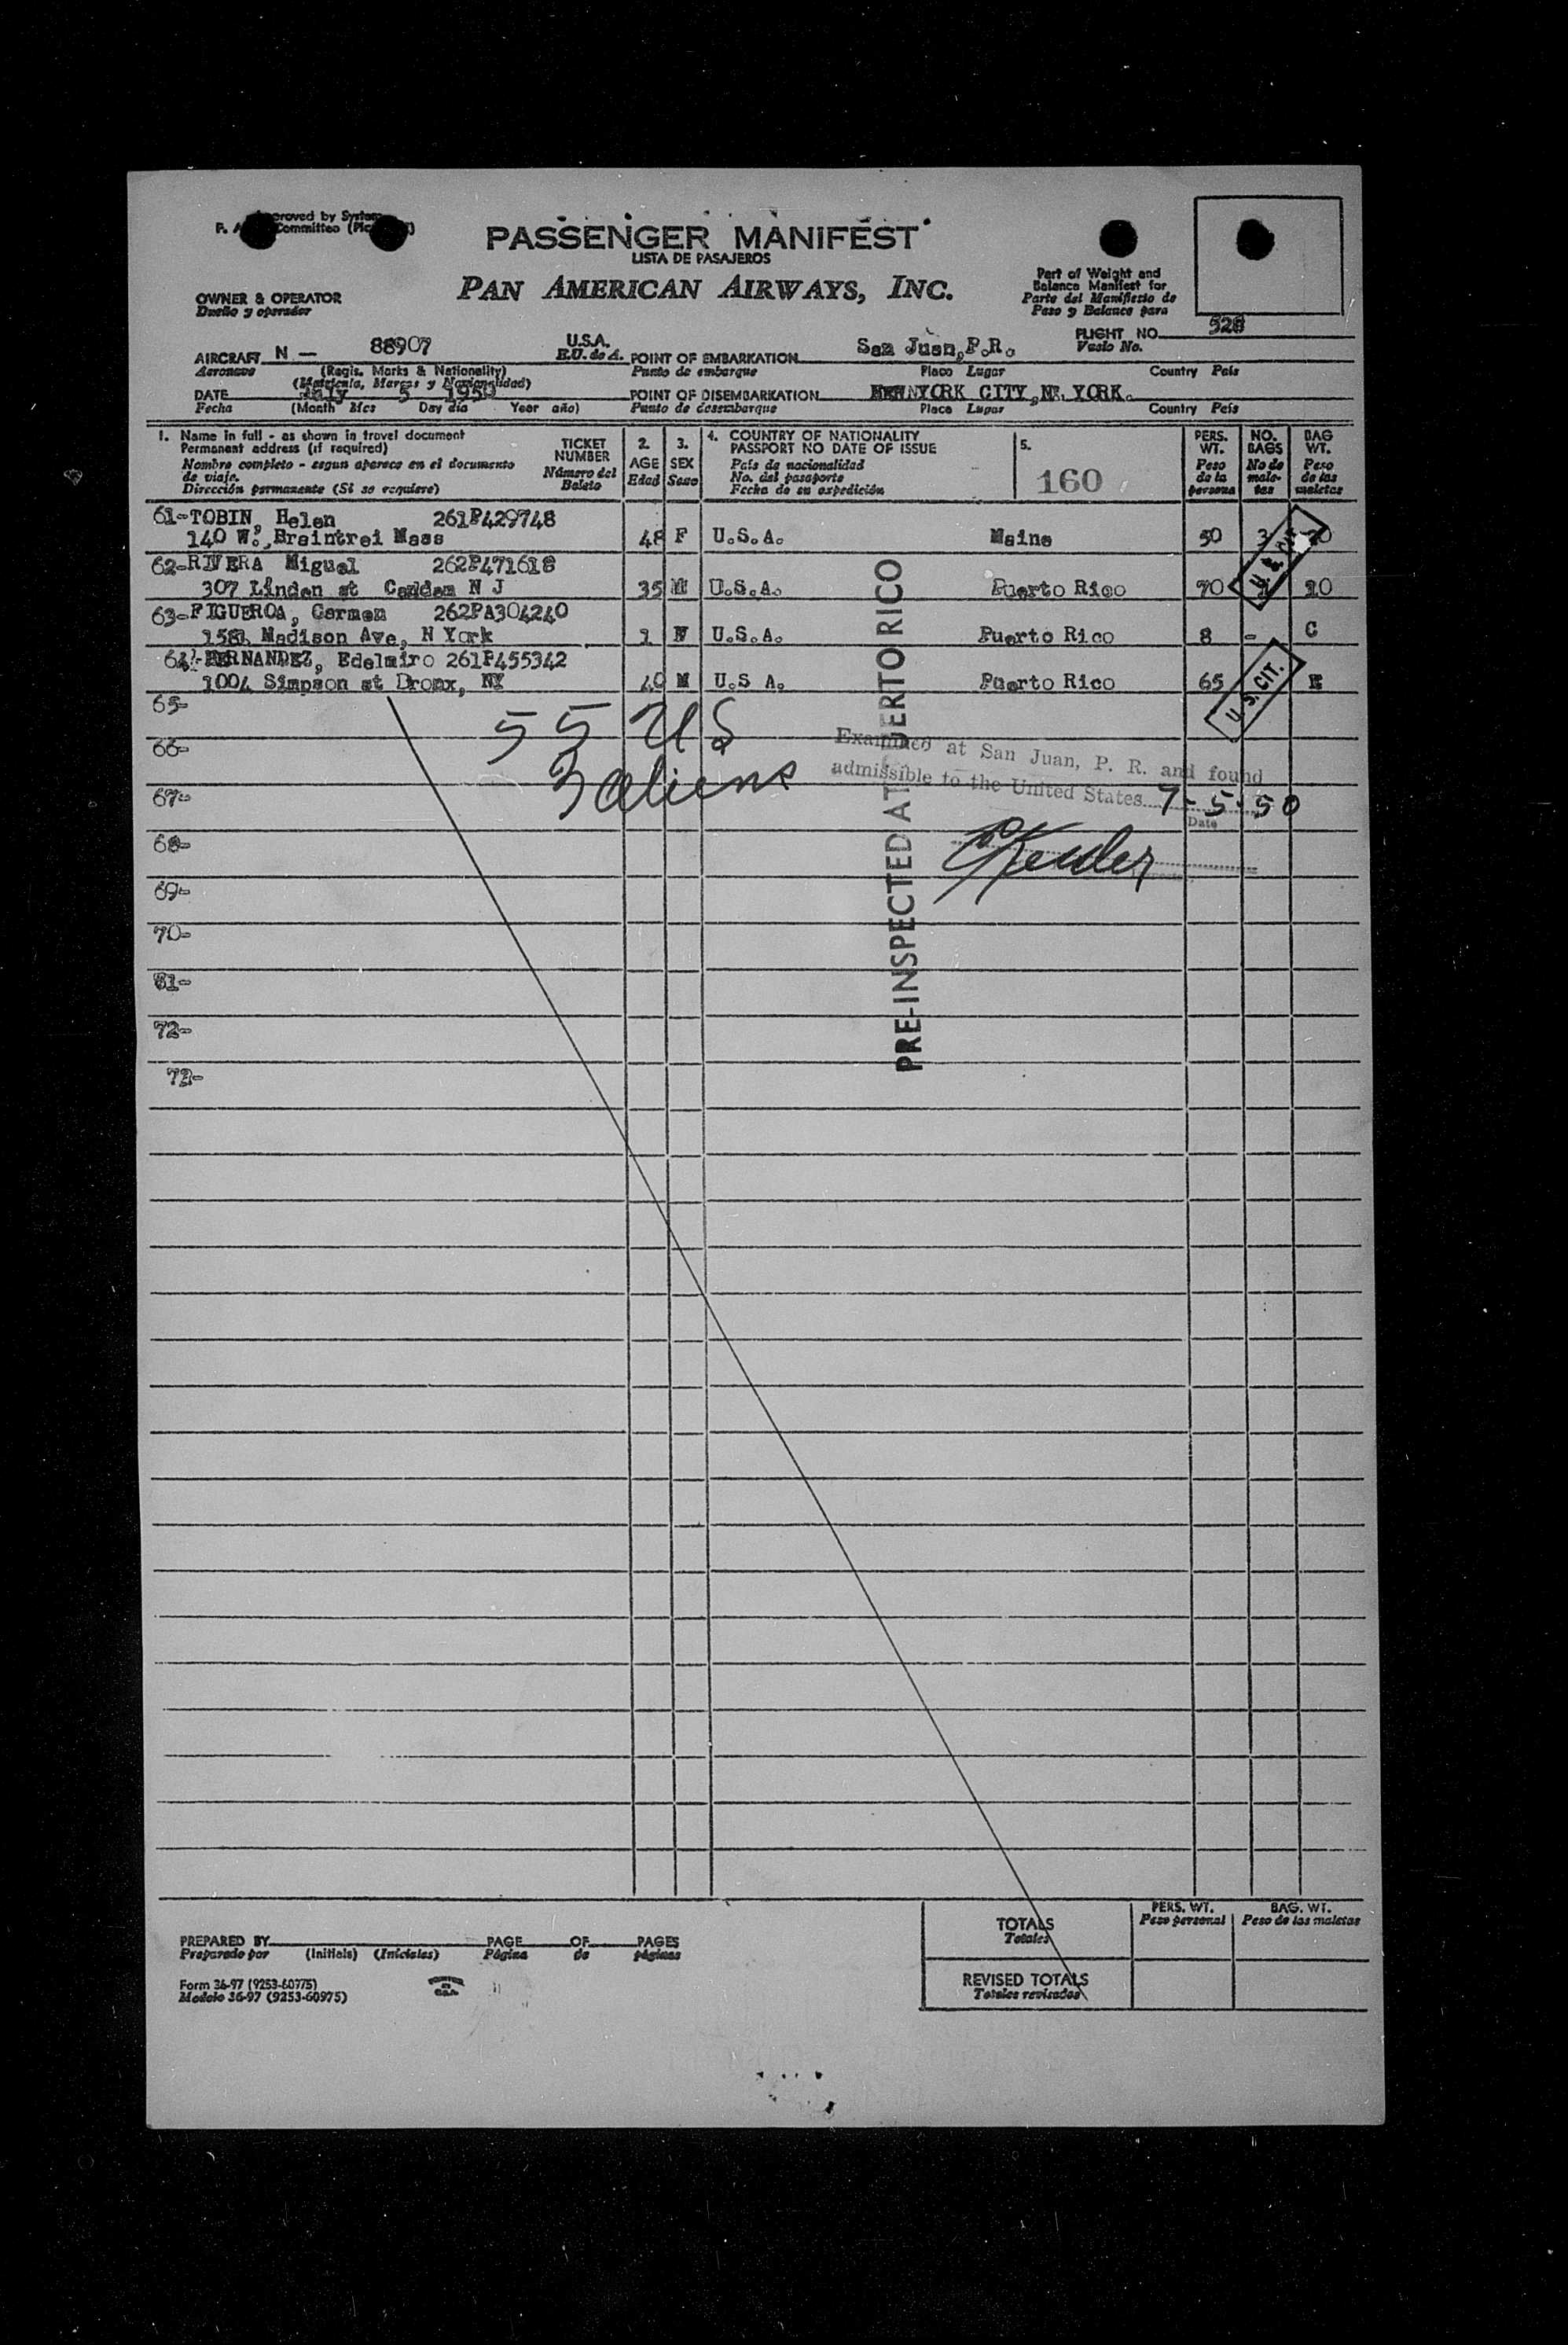 PASSENGER MANIFEST
LISTA DE PASAJEROS
PAN AMERICAN AIRWAYS, INC.
OWNER & OPERATOR
Dueño y operador
Part of Weight and
Balance Manifest for
Parte del Manifiesto de
Peso y Balance para
FLIGHT NO. 528
Vuelo No.
AIRCRAFT N — 88907 U.S.A.
Aeronave (Regis. Marks & Nationality) E.U. de A.
(Matricula, Marcas y Nacionalidad)
POINT OF EMBARKATION San Juan,P.R.
Punto de embarque Place Lugar Country País
DATE July 5 1950
Fecha (Month Mes Day día Year año)
POINT OF DISEMBARKATION YORK CITY, YORK.
Punto de desembarque Place Lugar Country País
1. Name in full - as shown in travel document
Permanent address (if required)
Nombre completo - segun aparece en el documento
de viaje.
Dirección permanente (Si se requiere)
TICKET
NUMBER
Número del
Boleto
2.
AGE
Edad
3.
SEX
Sexo
4. COUNTRY OF NATIONALITY
PASSPORT NO DATE OF ISSUE
País de nacionalidad
No. del pasaporte
Fecha de su expedición
5.
160
PERS.
WT.
Peso
de la
persona
NO.
BAGS
No de
male-
tas
BAG
WT.
Peso
de las
maletas
61-TOBIN, Helen 261P429748
140 W., Braintrei Mass 48 F U.S.A. Maine 50 3
62-RIVERA Miguel 262P471618
307 Linden st Camden N J 35 M U.S.A. Puerto Rico 70
63-FIGUEROA, Carmen 262PA304240
Madison Ave, N York U.S.A. Puerto Rico 8 - C
64-HERNANDEZ, Edelmiro 261P455342
1004 Simpson st Bronx, NY 40 M U.S A. Puerto Rico 65
U. S. CIT.
U. S. CIT.
65-
66-
67-
68-
69-
70-
72-
55 US
3 aliens
PRE-INSPECTED AT PUERTO RICO
Examined at San Juan, P. R. and found
admissible to the United States 7-5-50
Date
PREPARED BY PAGE OF PAGES
Preparado por (Initials) (Iniciales) Página de páginas
Form 36-97 (9253-60975)
Modelo 36-97 (9253-60975)
TOTALS
Totales
REVISED TOTALS
Totales revisados
PERS. WT.
Peso personal
BAG. WT.
Peso de las maletas